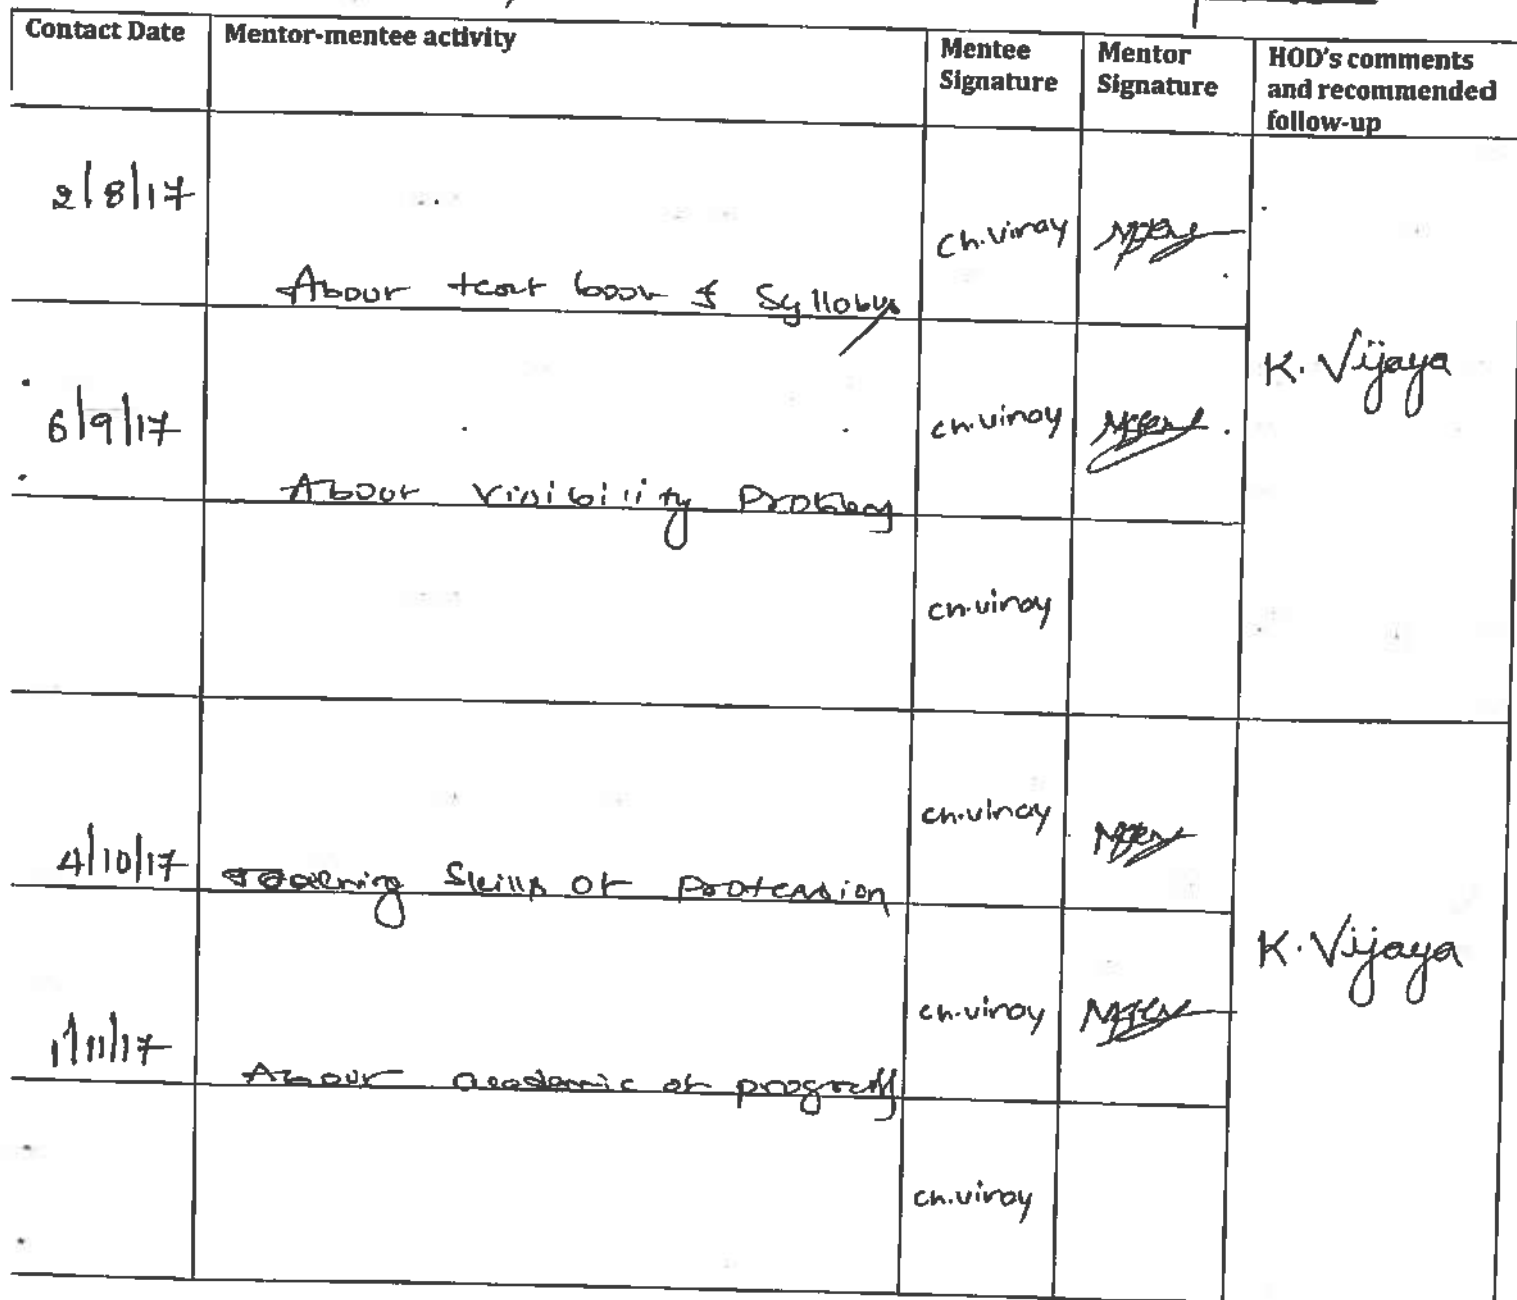 Contact Date
Mentor-mentee activity
Mentee
Signature
Mentor
Signature
HOD's comments
and recommended
follow-up
2/8/17
About text book & Syllabus
Ch.Vinay
K. Vijaya
6/9/17
About Visibility Problem
ch.vinay
ch.vinay
4/10/17
Skills of Profession
ch.vinay
K. Vijaya
1/11/17
About academic of progress
ch.vinay
ch.vinay